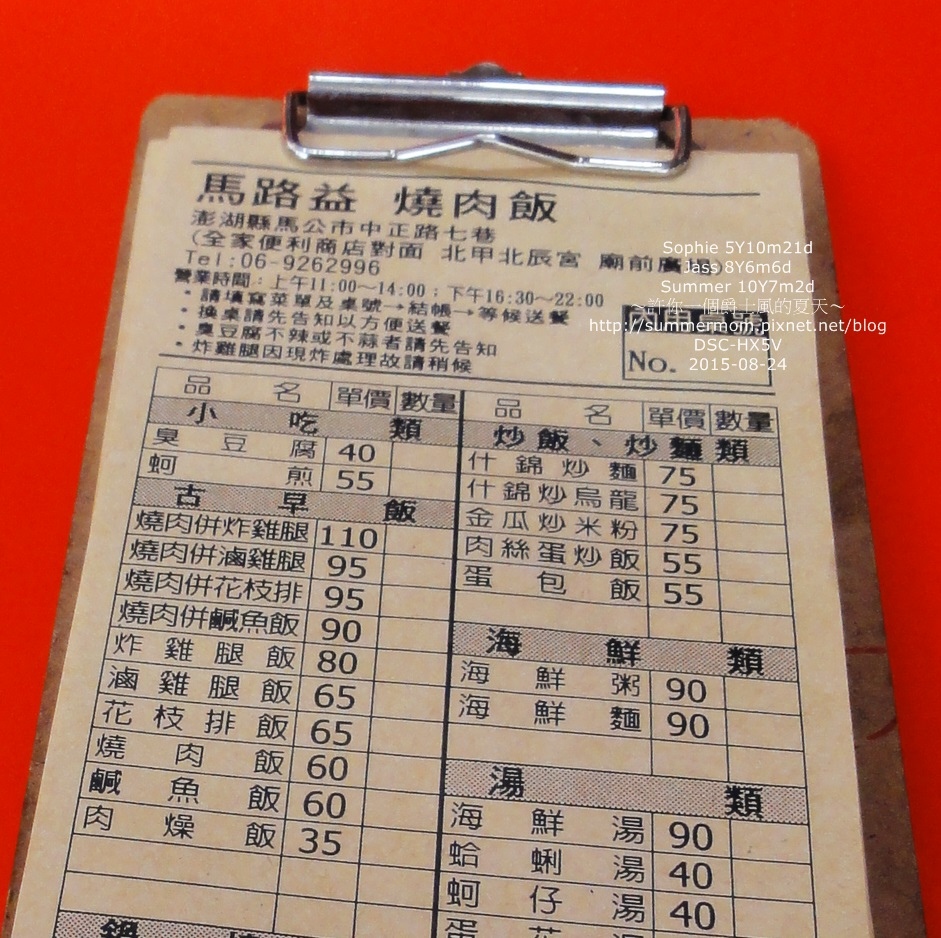 馬路益 燒肉飯
澎湖縣馬公市中正路七巷
(全家便利商店對面 北甲北辰宮 廟前廣場)
Tel:06-9262996
營業時間：上午11:00～14:00；下午16:30～22:00
・請填寫菜單及桌號→結帳→等候送餐
・換桌請先告知以方便送餐
・臭豆腐不辣或不蒜者請先告知
・炸雞腿因現炸處理故請稍候
No.
Sophie 5Y10m21d
Jass 8Y6m6d
Summer 10Y7m2d
～許你一個爵士風的夏天～
http://summermom.pixnet.net/blog
DSC-HX5V
2015-08-24
品名 單價 數量
小吃類
臭豆腐 40
蚵煎 55
古早飯
燒肉併炸雞腿 110
燒肉併滷雞腿 95
燒肉併花枝排 95
燒肉併鹹魚飯 90
炸雞腿飯 80
滷雞腿飯 65
花枝排飯 65
燒肉飯 60
鹹魚飯 60
肉燥飯 35
品名 單價 數量
炒飯、炒麵類
什錦炒麵 75
什錦炒烏龍 75
金瓜炒米粉 75
肉絲蛋炒飯 55
蛋包飯 55
海鮮類
海鮮粥 90
海鮮麵 90
湯類
海鮮湯 90
蛤蜊湯 40
蚵仔湯 40
蛋花湯